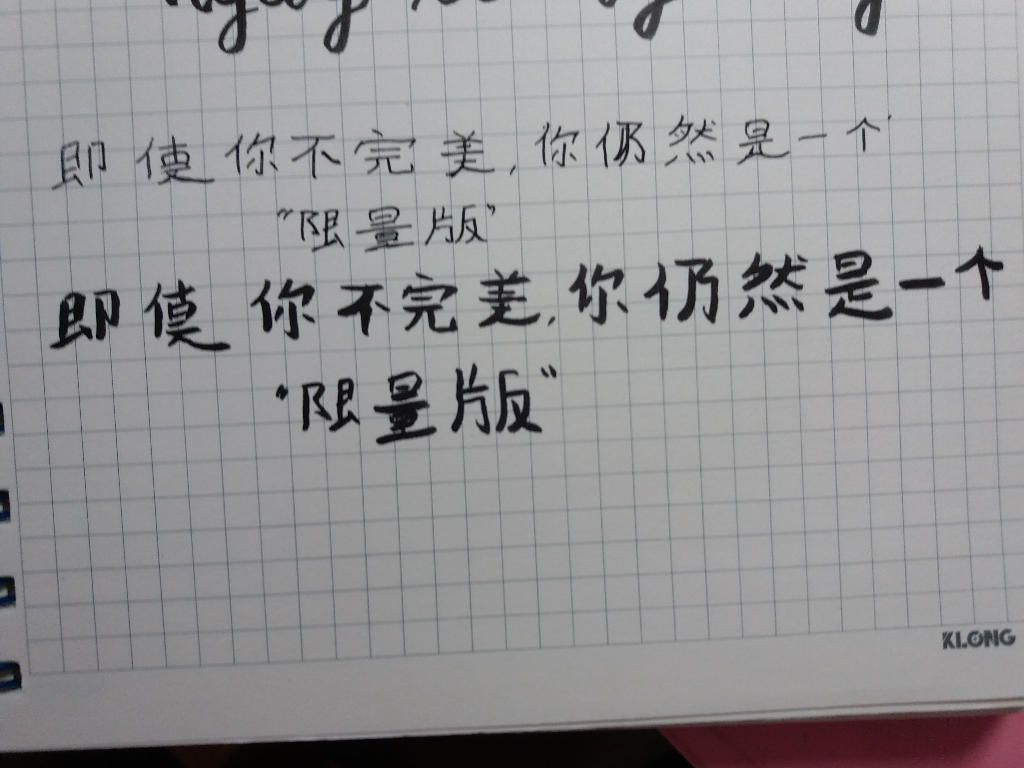 即使你不完美,你仍然是一个
"限量版"
即使你不完美,你仍然是一个
"限量版"
KLONG